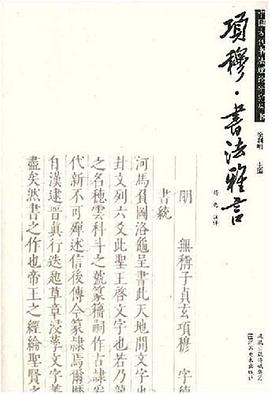 中国古代书法理论研究丛书
徐利明 主编
項穆·書法雅言
明 無稱子貞玄項穆 字德
書統
河馬負圖洛龜呈書此天地開文
卦文列六爻此聖王啓文字也若乃
之名穗雲科斗之號篆籀嗣作古隸爰
代新不可殫述信後傳今篆隸焉爾歷
自漢逮晉真行迭起章草浸孳文字菁
盡矣然書之作也帝王之經綸聖賢之